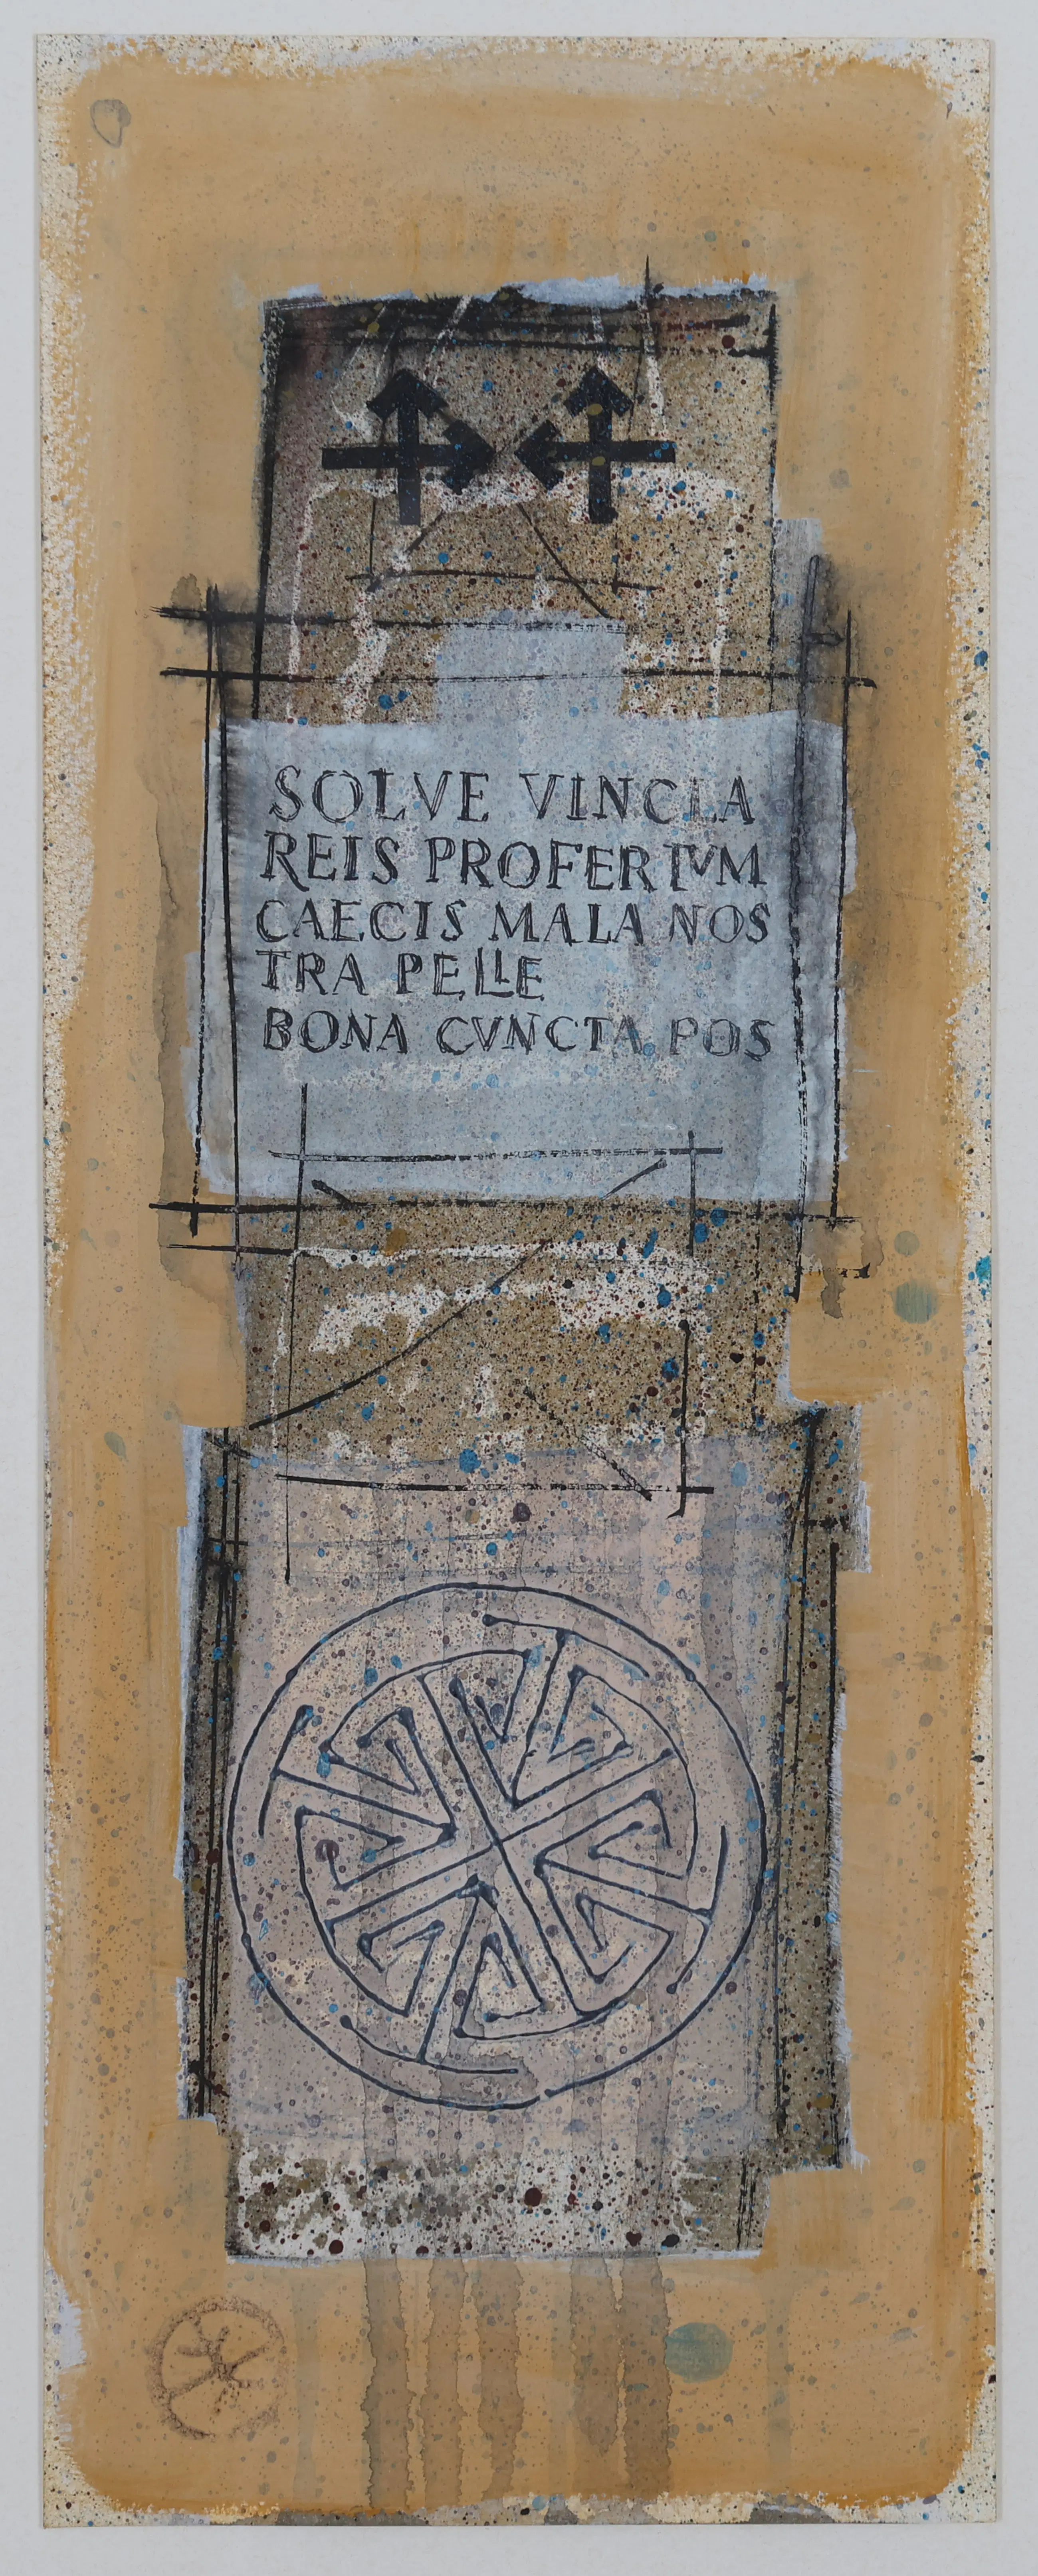 SOLVE VINCLA
REIS PROFERTVM
CAECIS MALA NOS
TRA PELLE
BONA CVNCTA POS